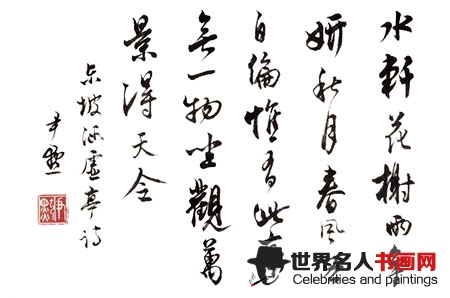 水軒花榭兩爭
妍秋月春風各
自偏惟有此亭
無一物坐觀萬
景得天全
東坡涵虛亭詩
尹默
尹默
世界名人书画网
Celebrities and paintings